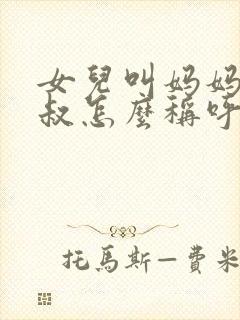 女兒叫妈妈
叔怎麼稱呼
托馬斯—費米